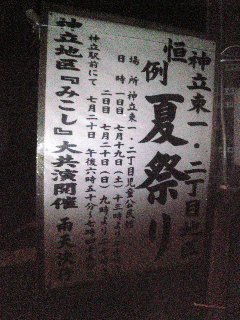 神立東一・二丁目地区
恒例
夏祭り
場所 神立東一・二丁目児童公民館
日時 一日目 七月十九日(土)十三時より
二日目 七月二十日(日)九時より
神立駅前にて 七月二十日 午後六時五十分～七時
神立地区『みこし』大共演開催 雨天決行